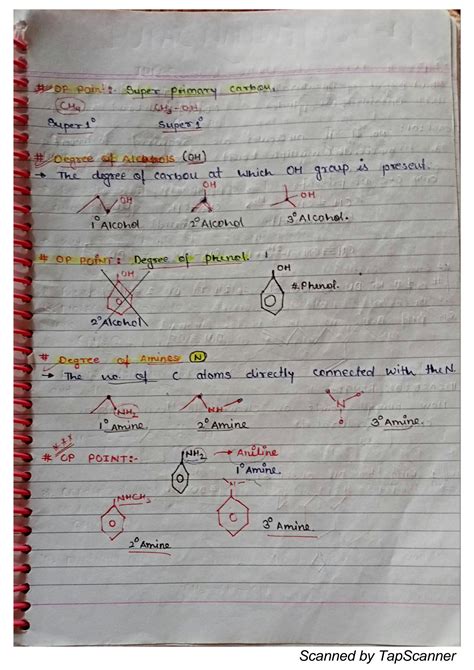 # OP Point: Super Primary Carbon.
CH4 CH3-OH
Super 1° Super 1°
# Degree of Alcohols (OH)
→ The degree of carbon at which OH group is present.
OH OH OH
1° Alcohol 2° Alcohol 3° Alcohol.
# OP POINT: Degree of phenol.
OH OH
Phenol.
2° Alcohol
# Degree of Amines (N)
→ The no. of C atoms directly connected with the N.
NH2 NH N
1° Amine 2° Amine 3° Amine.
# OP POINT:-
NH2 → Aniline
1° Amine.
NHCH3 N
3° Amine
2° Amine
Scanned by TapScanner